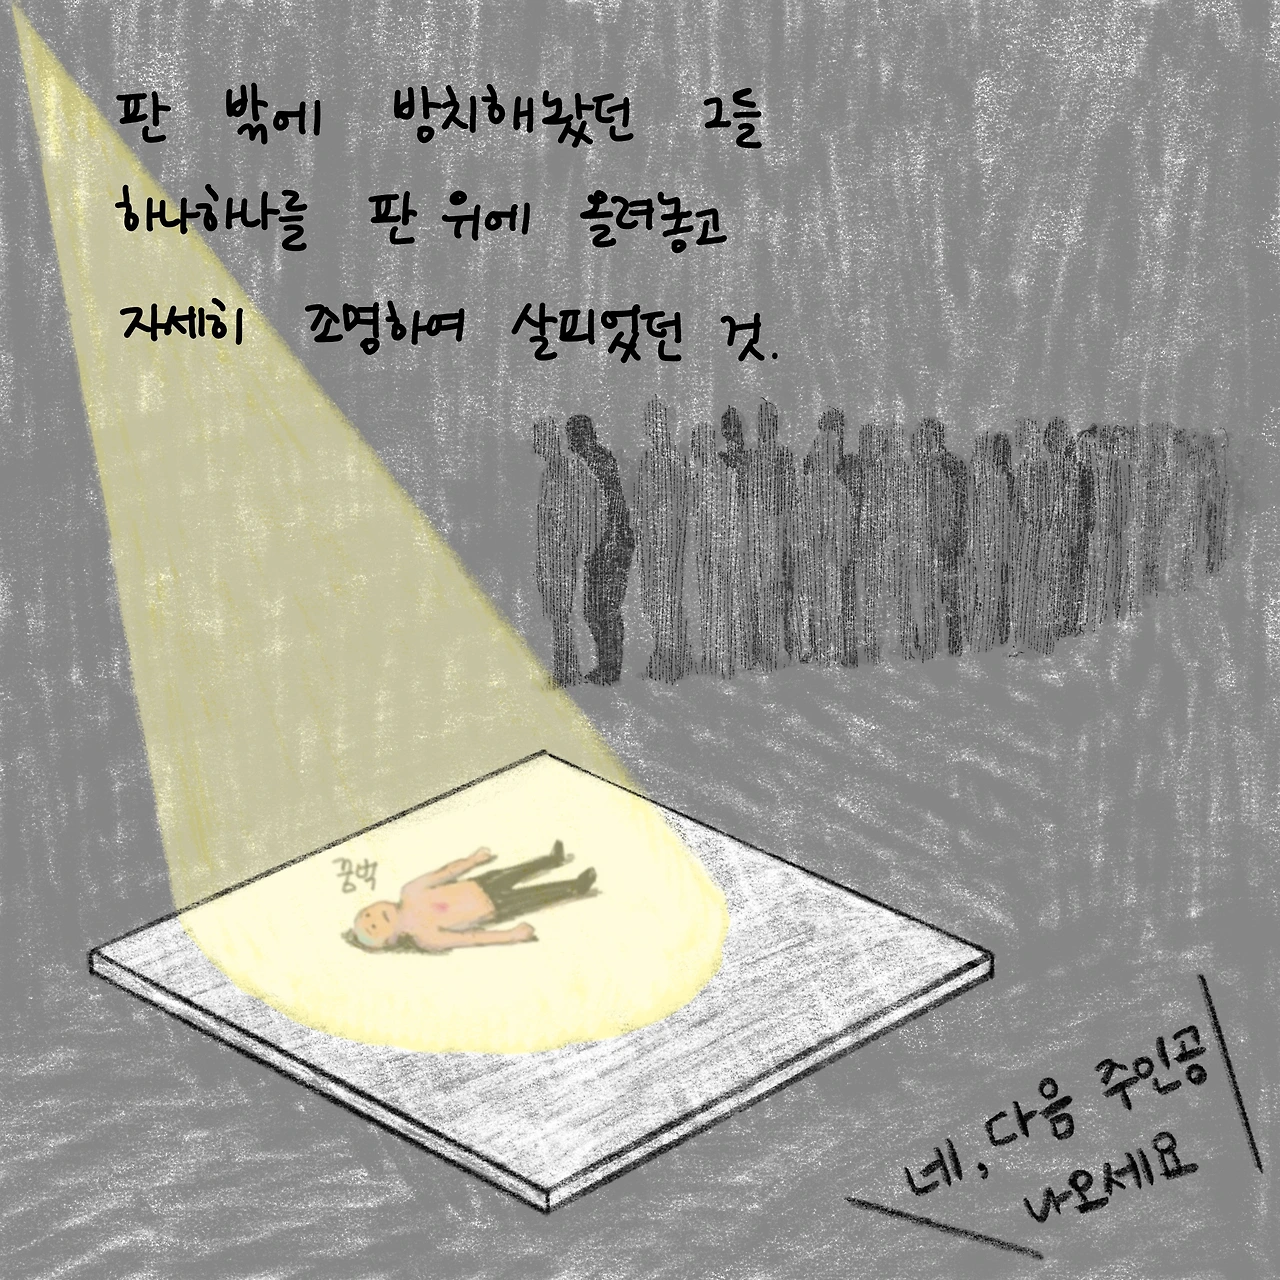 판 밖에 방치해놨던 그들
하나하나를 판 위에 올려놓고
자세히 조명하여 살피었던 것.
꿈벅
네, 다음 주인공
나오세요